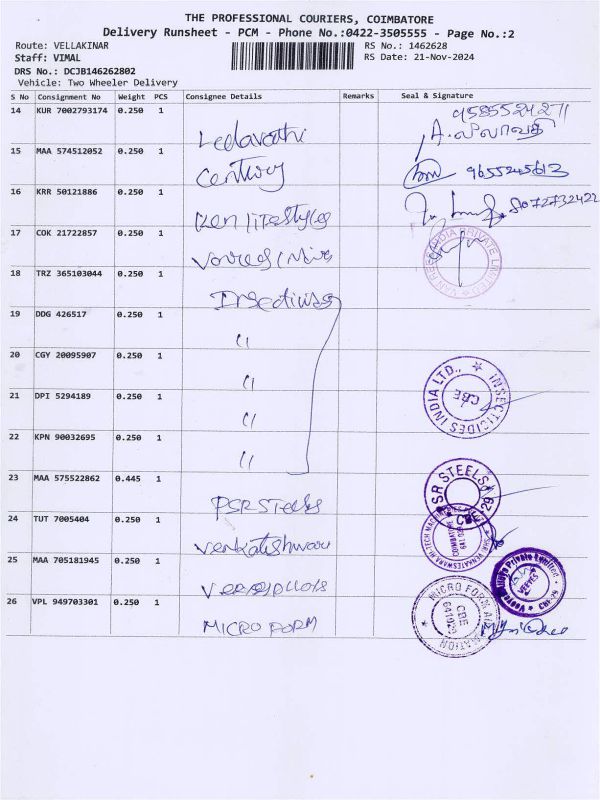 THE PROFESSIONAL COURIERS, COIMBATORE
Delivery Runsheet - PCM - Phone No.:0422-3505555 - Page No.:2
Route: VELLAKINAR RS No.: 1462628
Staff: VIMAL RS Date: 21-Nov-2024
DRS No.: DCJB146262802
Vehicle: Two Wheeler Delivery
S No Consignment No Weight PCS Consignee Details Remarks Seal & Signature
14 KUR 7002793174 0.250 1 Leelavathi 9585524271
A. லீலாவதி
15 MAA 574512052 0.250 1 Century 9655245613
16 KRR 50121886 0.250 1 Ken lifestyles 8072732422
17 COK 21722857 0.250 1
PRIVATE LIMITED
18 TRZ 365103044 0.250 1
19 DDG 426517 0.250 1 〃
20 CGY 20095907 0.250 1 〃
INSECTICIDES INDIA LTD., CBE
21 DPI 5294189 0.250 1 〃
22 KPN 90032695 0.250 1 〃
23 MAA 575522862 0.445 1 PSR Steels
SR STEELS 29
24 TUT 7005404 0.250 1 Venkateshwara
25 MAA 705181945 0.250 1
Private Limited
26 VPL 949703301 0.250 1 MICRO FORM
MICRO FORM CBE 641029